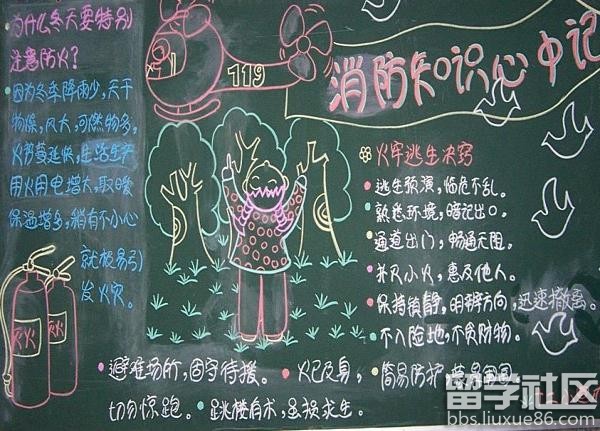 为什么冬天要特别
注意防火?
因为冬季降雨少,天干
物燥,风大,可燃物多,
火势蔓延快,生活生产
用火用电增大,取暖
保温增多,稍有不小心
就极易引
发火灾。
119
消防知识心中记
火灾逃生决窍
逃生预演,临危不乱。
熟悉环境,暗记出口。
通道出门,畅通无阻。
扑灭小火,惠及他人。
保持镇静,明辨方向,迅速撤离。
不入险地,不贪财物。
简易防护
避难场所,固守待援。
火已及身,
切勿惊跑。
跳楼有术,虽损求生。
灭火
灭火
留学社区
bbs.liuxue86.com